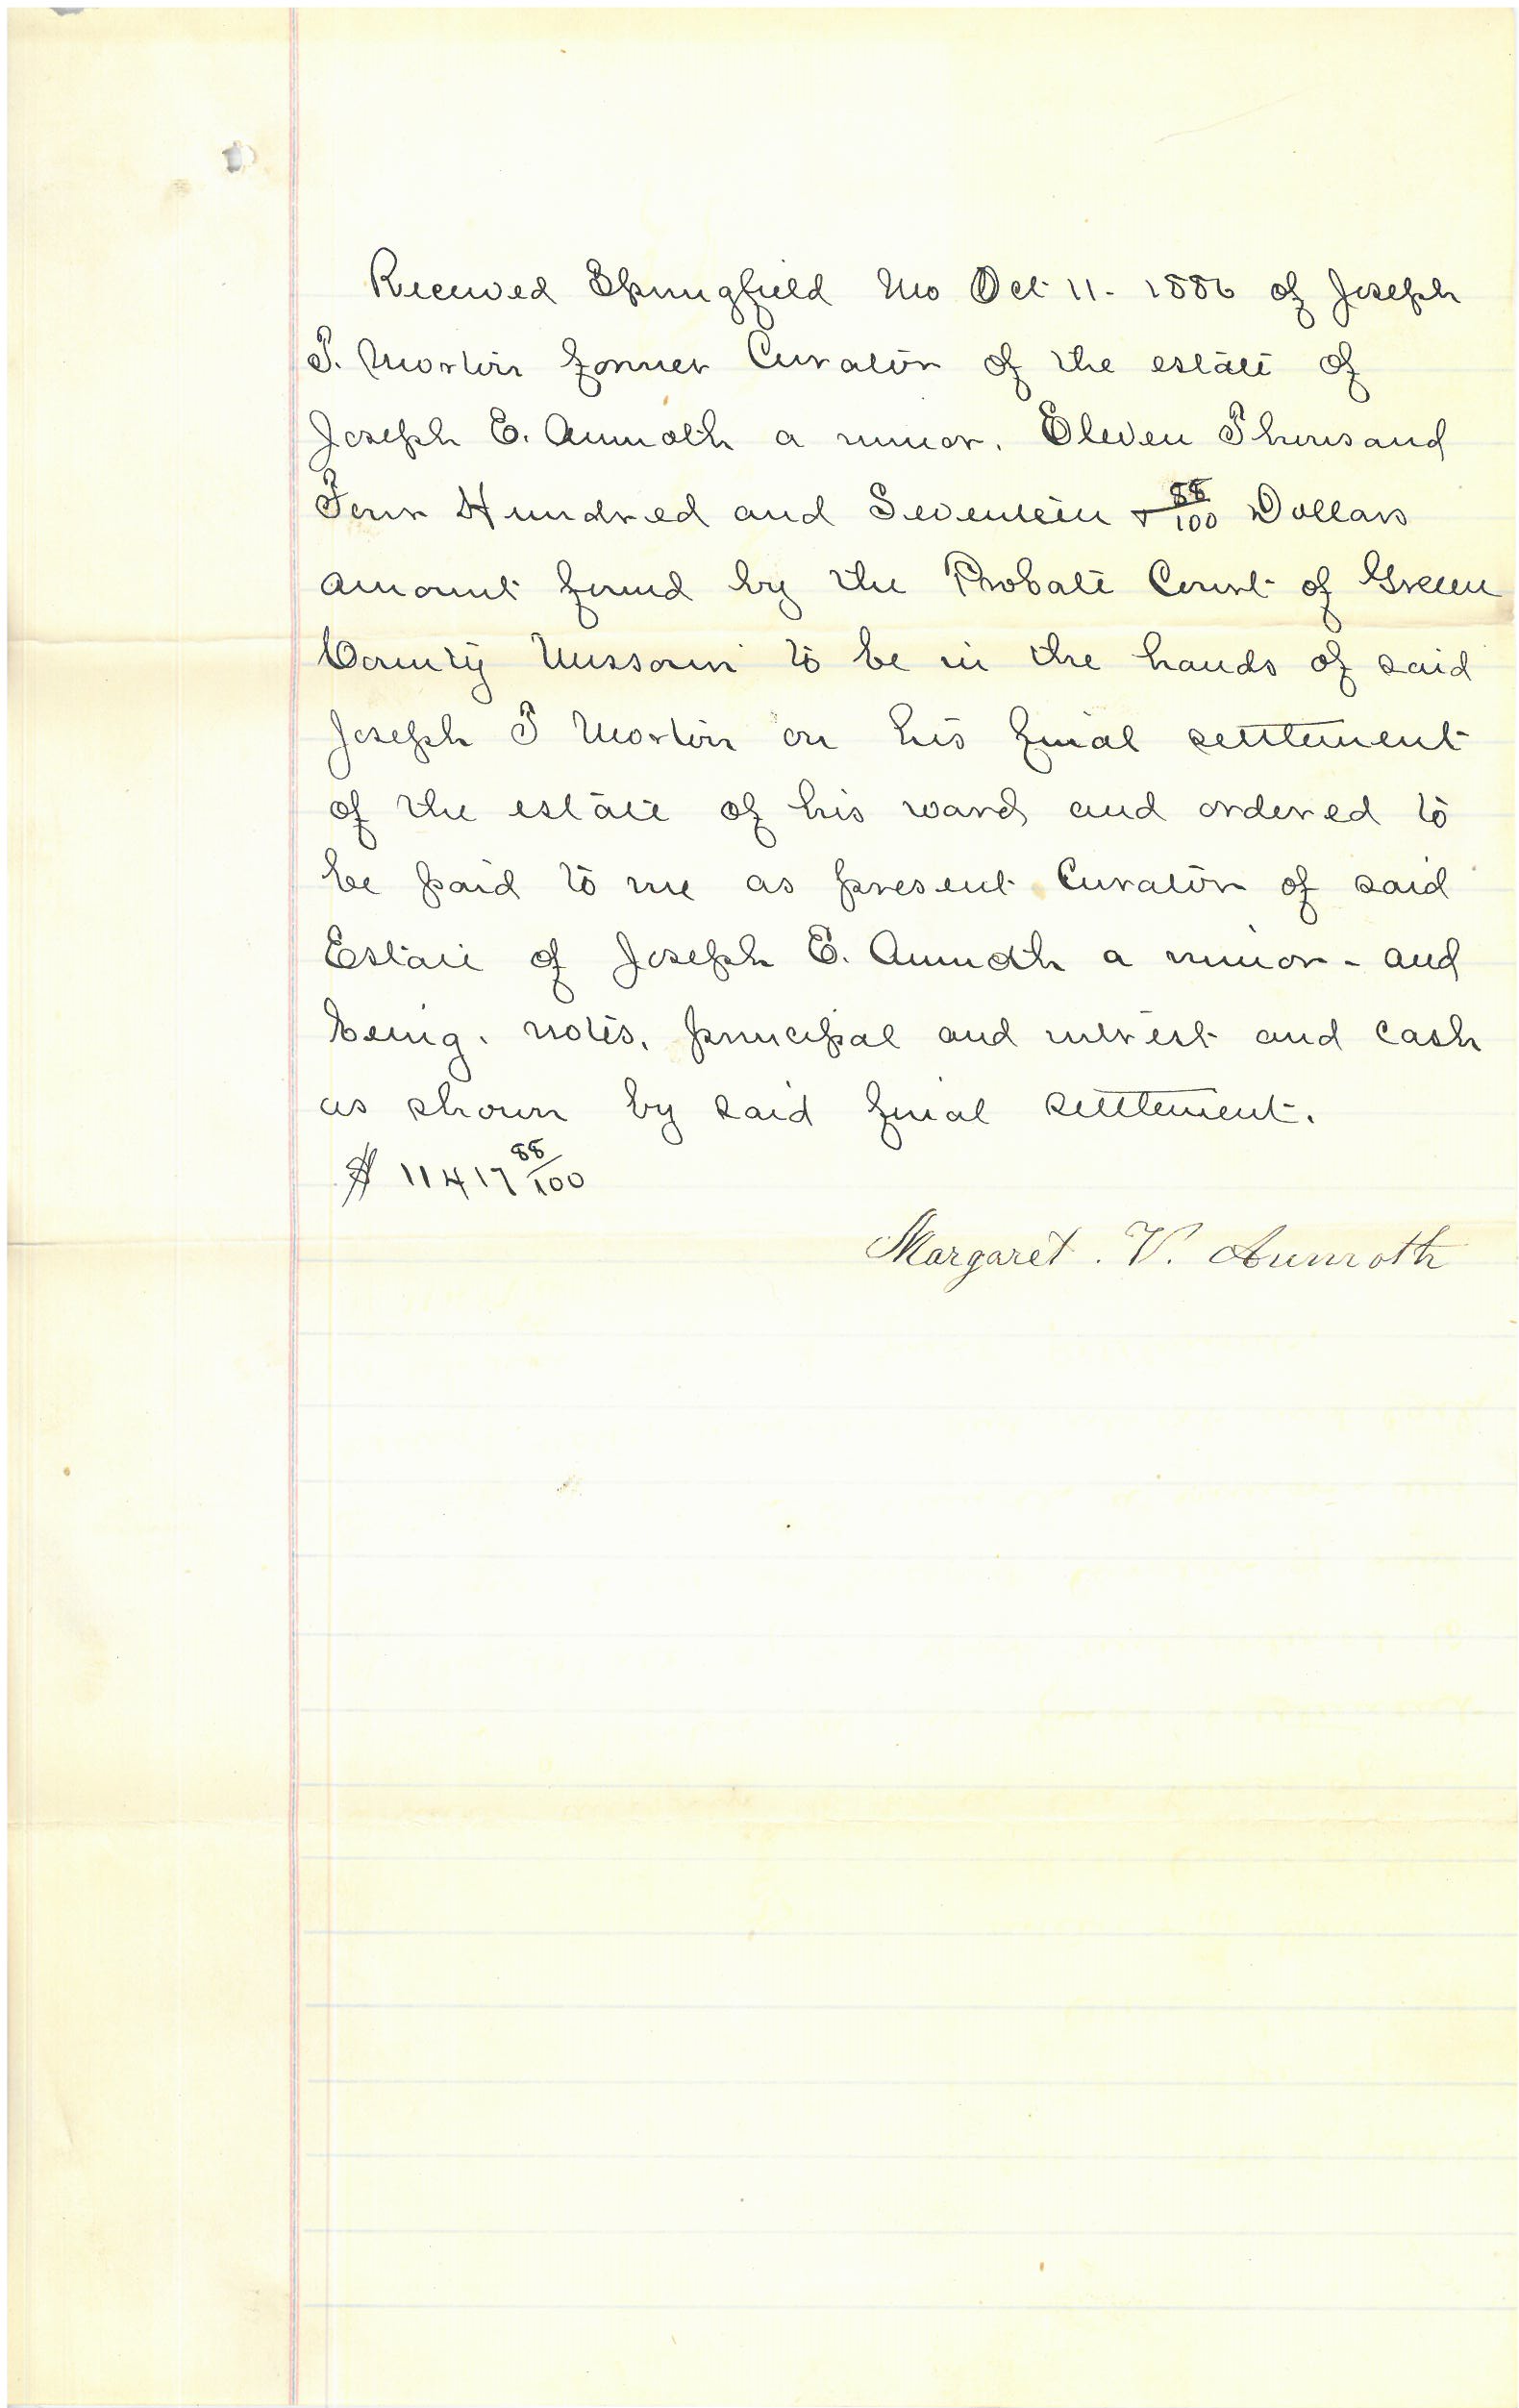 Received Springfield Mo Oct 11 - 1886 of Joseph
T. Morton former Curator of the estate of
Joseph E. Aumoth a minor. Eleven Thousand
Four Hundred and Seventeen & 88/100 Dollars
amount found by the Probate Court of Green
County Missouri to be in the hands of said
Joseph T Morton on his final settlement
of the estate of his ward and ordered to
be paid to me as present Curator of said
Estate of Joseph E. Aumoth a minor - and
being. notes, principal and interest and cash
as shown by said final settlement.
$ 11417 88/100
Margaret. V. Aumoth